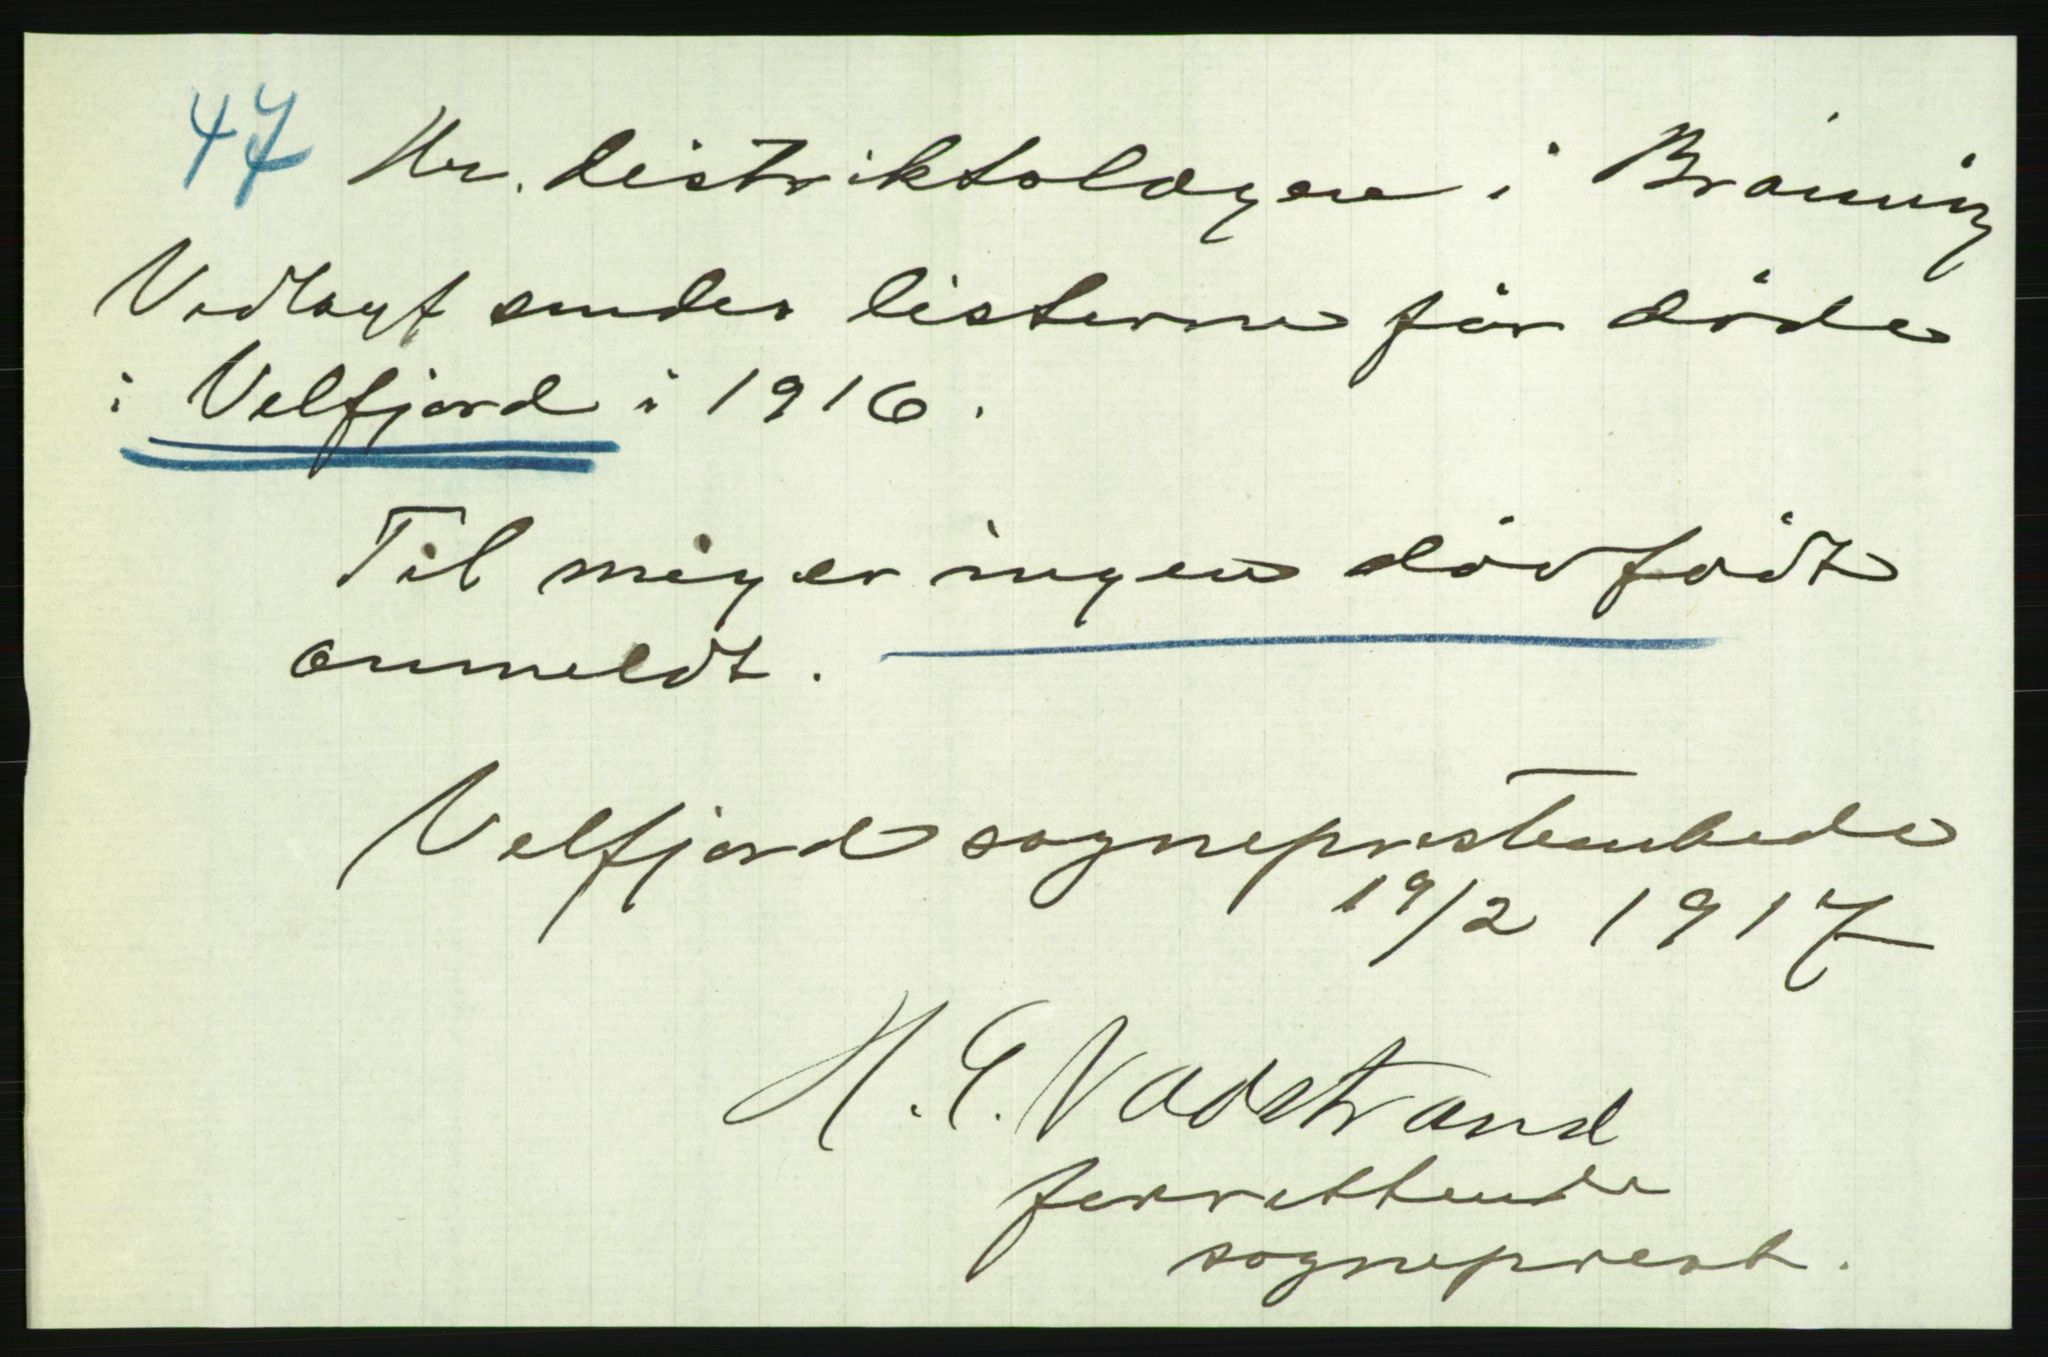 47 Hr. distriktslægen i Brønnøy
Vedlagt sendes listerne for døde
i Velfjord i 1916.
Til mig er ingen dødfødt
anmeldt.
Velfjord sogneprestembede
19/2 1917
H. E. Vadstrand
forrettende
sogneprest.